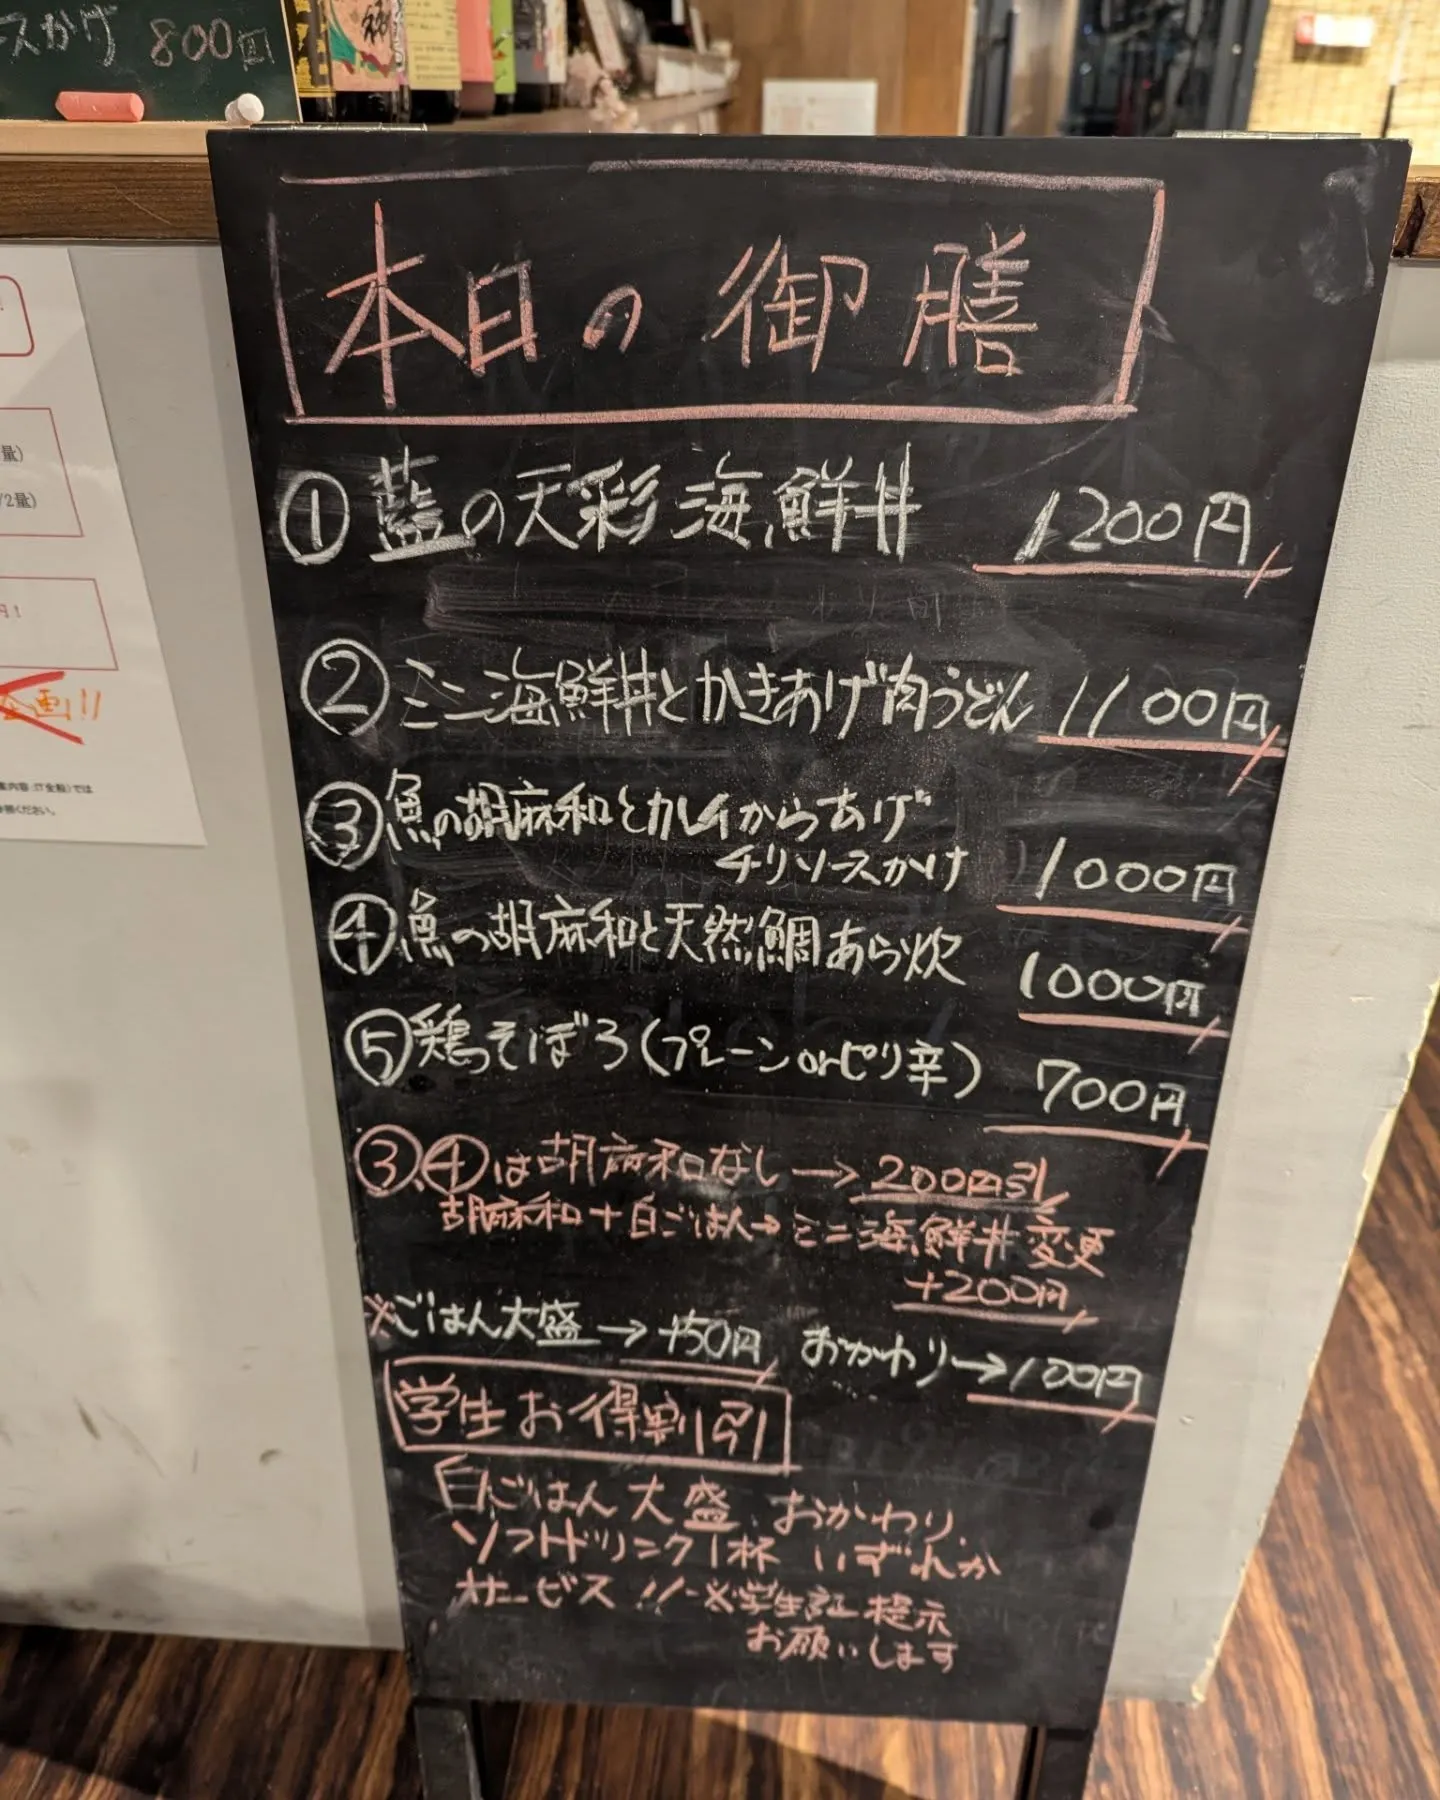 スかけ 800円
本日の御膳
① 藍の天彩海鮮丼 1200円
② ミニ海鮮丼とかきあげ肉うどん 1100円
③ 魚の胡麻和とカレイからあげ
チリソースかけ 1000円
④ 魚の胡麻和と天然鯛あら炊 1000円
⑤ 鶏そぼろ(プレーンorピリ辛) 700円
③、④は胡麻和なし→200円引
胡麻和+白ごはん→ミニ海鮮丼変更
+200円
※ごはん大盛→+50円 おかわり→100円
学生お得割引
白ごはん大盛、おかわり、
ソフトドリンク1杯 いずれか
サービス!! ※学生証提示
お願いします
量)
/2量)
円!
企画!!
案内容:IT全般)では
参照ください。